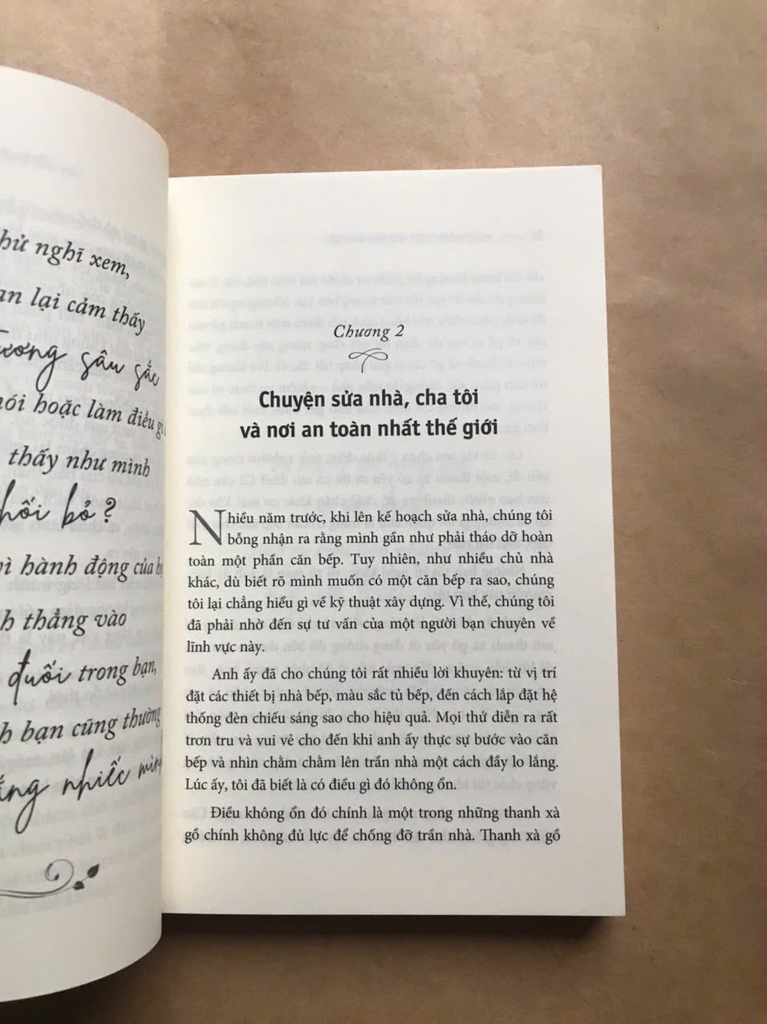 hử nghĩ xem,
an lại cảm thấy
ương sâu sắc
nói hoặc làm điều gì
thấy như mình
hối bỏ?
vì hành động của bạ
h thẳng vào
đuối trong bạn,
h bạn cũng thường
ằng nhiếc mìn
Chương 2
Chuyện sửa nhà, cha tôi
và nơi an toàn nhất thế giới
Nhiều năm trước, khi lên kế hoạch sửa nhà, chúng tôi
bỗng nhận ra rằng mình gần như phải tháo dỡ hoàn
toàn một phần căn bếp. Tuy nhiên, như nhiều chủ nhà
khác, dù biết rõ mình muốn có một căn bếp ra sao, chúng
tôi lại chẳng hiểu gì về kỹ thuật xây dựng. Vì thế, chúng tôi
đã phải nhờ đến sự tư vấn của một người bạn chuyên về
lĩnh vực này.
Anh ấy đã cho chúng tôi rất nhiều lời khuyên: từ vị trí
đặt các thiết bị nhà bếp, màu sắc tủ bếp, đến cách lắp đặt hệ
thống đèn chiếu sáng sao cho hiệu quả. Mọi thứ diễn ra rất
trơn tru và vui vẻ cho đến khi anh ấy thực sự bước vào căn
bếp và nhìn chằm chằm lên trần nhà một cách đầy lo lắng.
Lúc ấy, tôi đã biết là có điều gì đó không ổn.
Điều không ổn đó chính là một trong những thanh xà
gồ chính không đủ lực để chống đỡ trần nhà. Thanh xà gồ